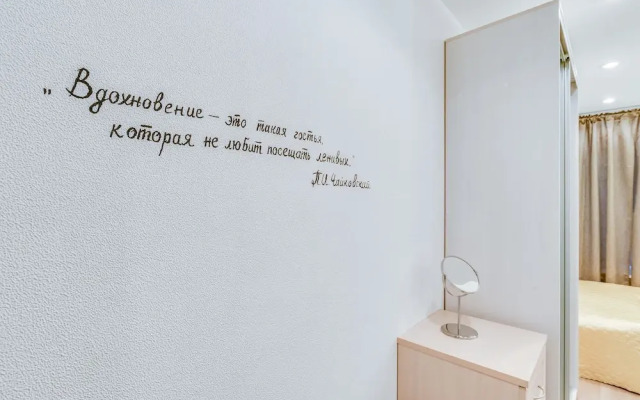 „ Вдохновение – это такая гостья,
которая не любит посещать ленивых."
П.И.Чайковский